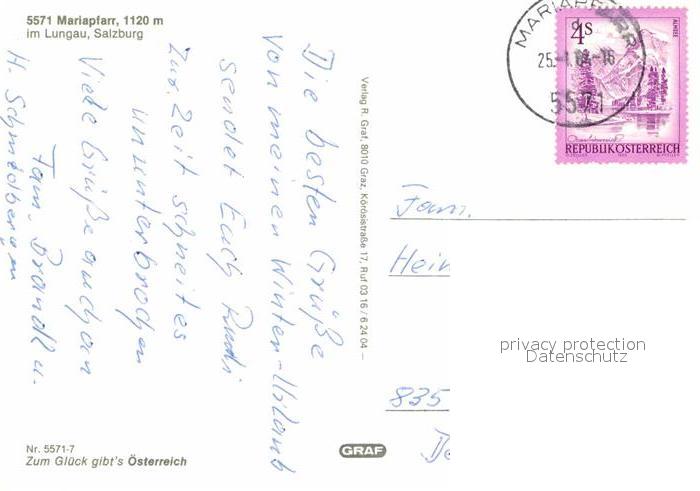 5571 Mariapfarr, 1120 m
im Lungau, Salzburg
Die besten Grüße
von meinen Winter-Urlaub
sendet Euch Rudi
Zur. Zeit schneit es
ununterbrochen
Viele Grüße auch an
Fam. Brandl u.
H.
Nr. 5571-7
Zum Glück gibt's Österreich
Verlag R. Graf, 8010 Graz, Körösistraße 17, Ruf 03 16 / 6 24 04 –
GRAF
MARIAPFARR
5571
4s
ALMSEE
REPUBLIK ÖSTERREICH
Fam.
Hein
835
privacy protection
Datenschutz